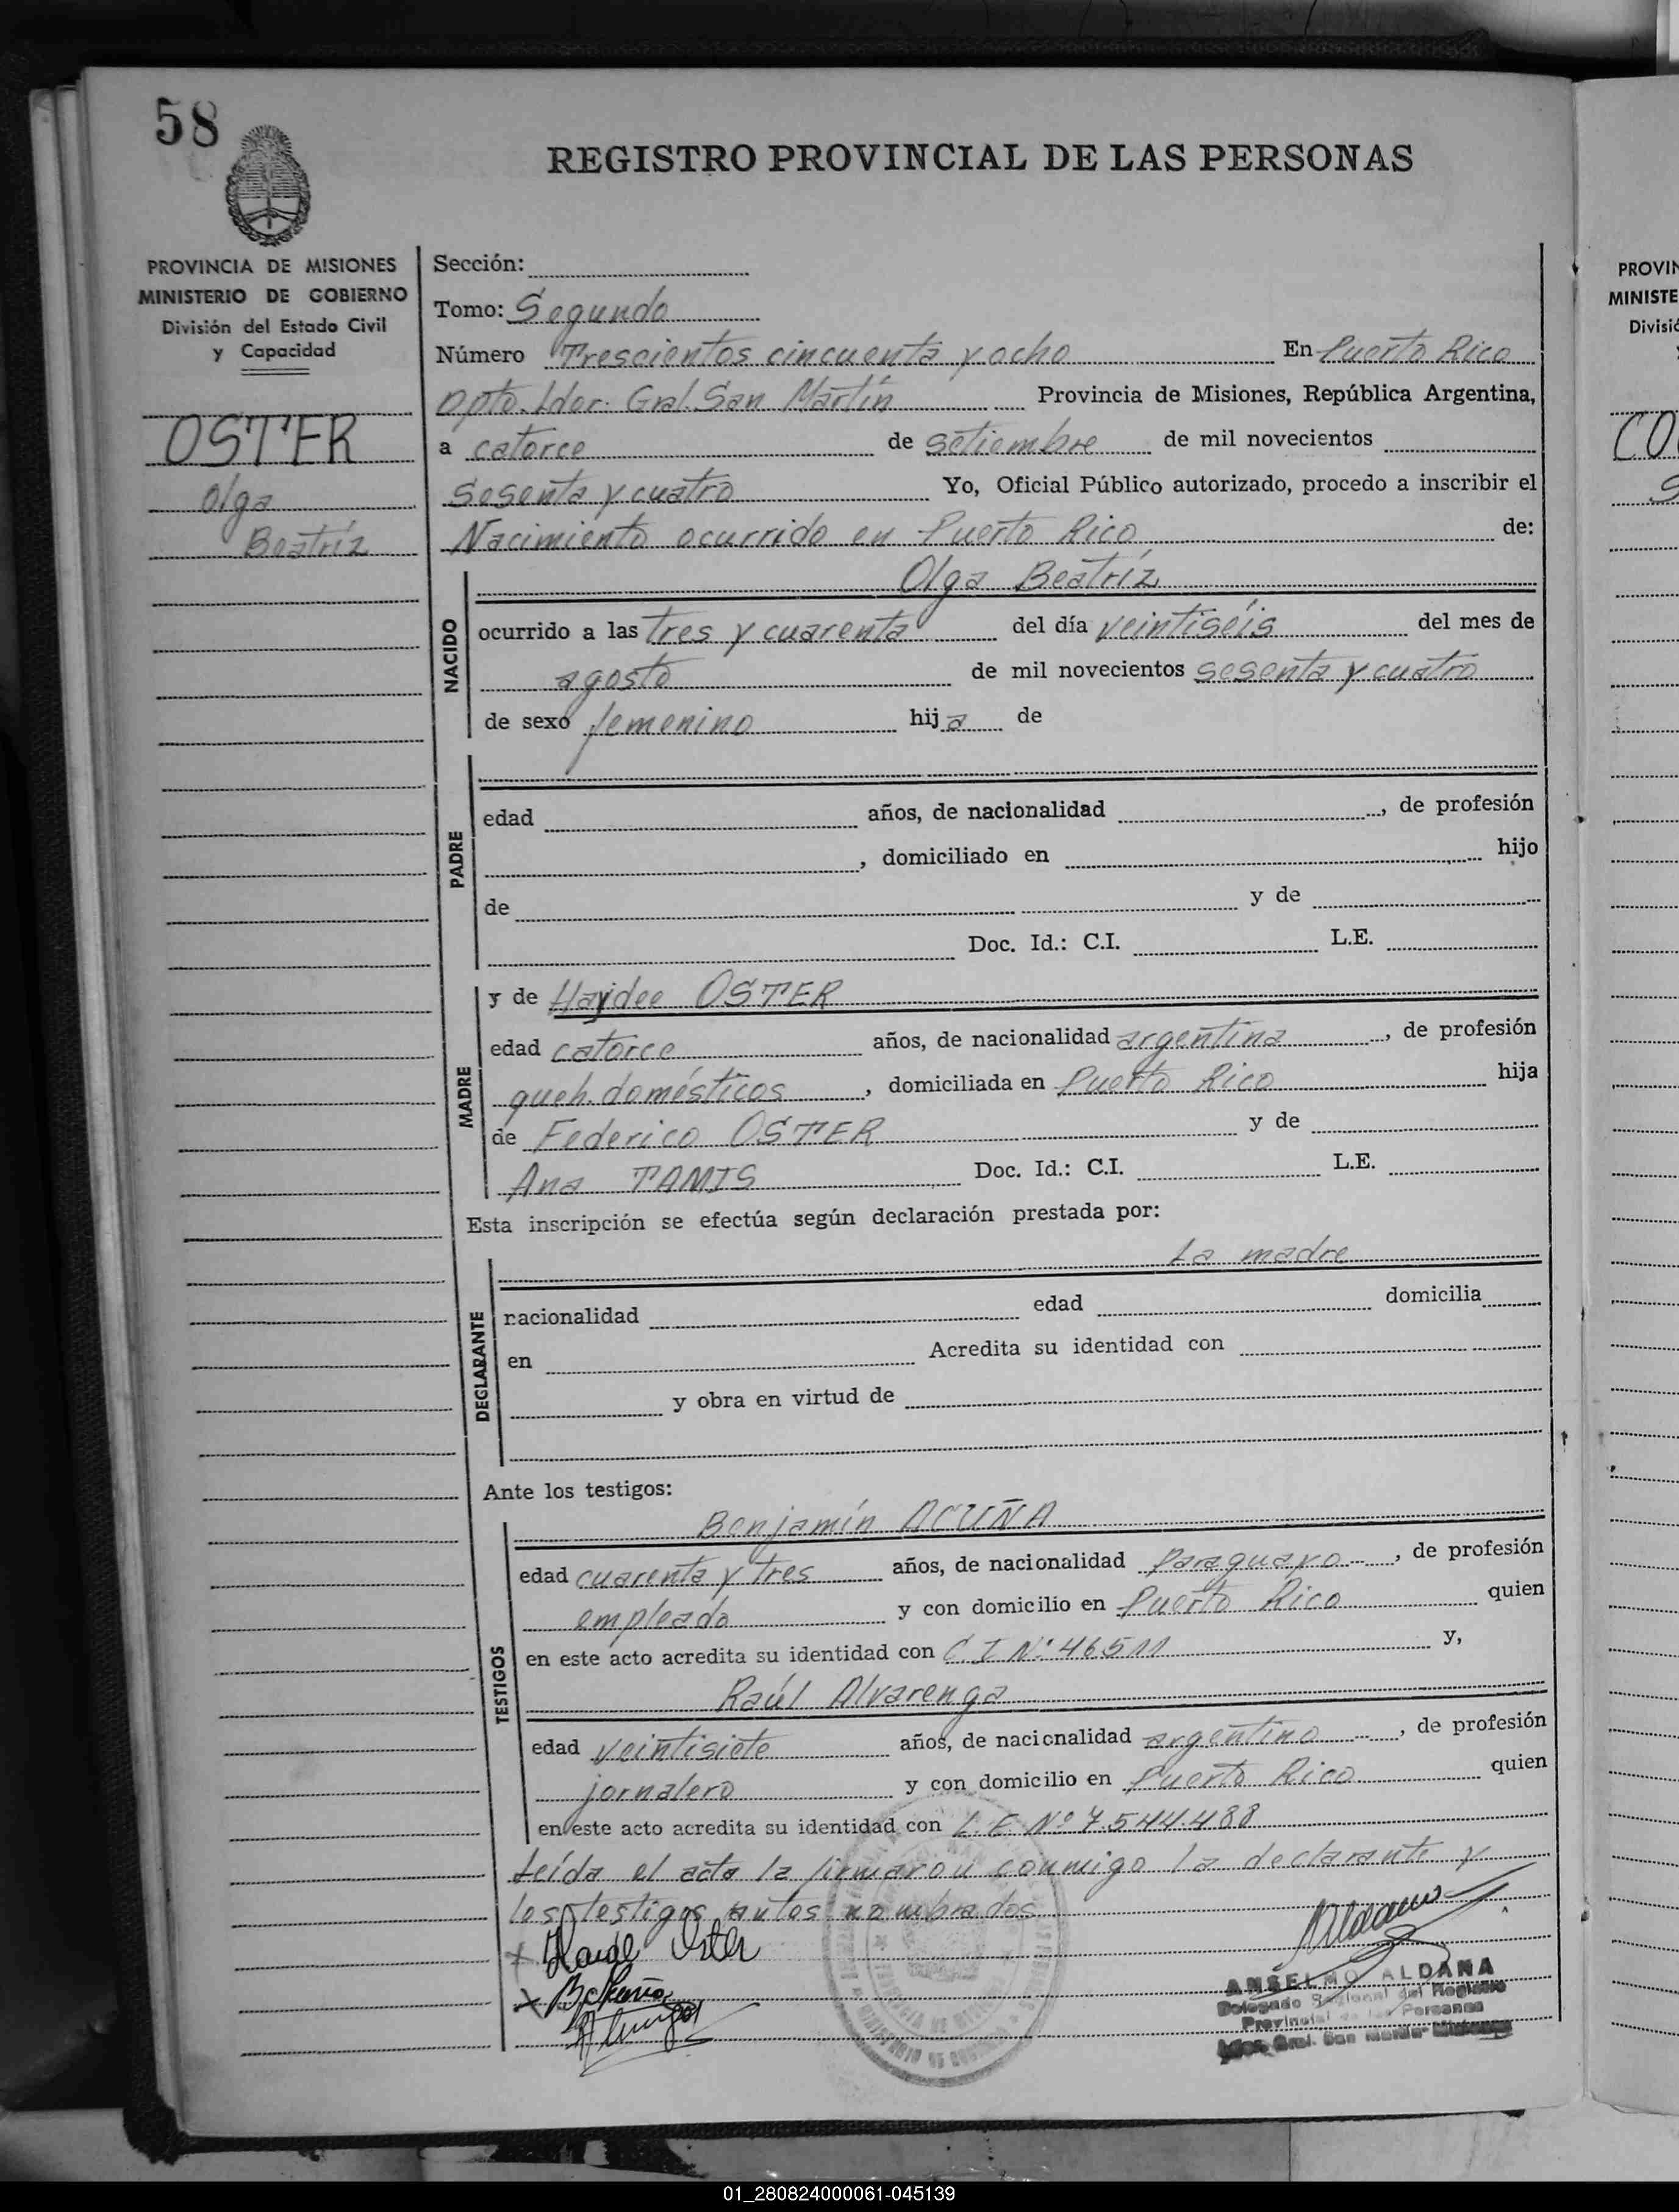 58
REGISTRO PROVINCIAL DE LAS PERSONAS
PROVINCIA DE MISIONES
MINISTERIO DE GOBIERNO
División del Estado Civil
y Capacidad
OSTER
Olga
Beatríz
Sección:
Tomo: Segundo
Número Trescientos cincuenta y ocho En Puerto Rico
Dpto. Ldor. Gral. San Martín Provincia de Misiones, República Argentina,
a catorce de setiembre de mil novecientos
sesenta y cuatro Yo, Oficial Público autorizado, procedo a inscribir el
Nacimiento ocurrido en Puerto Rico de:
Olga Beatríz
NACIDO
ocurrido a las tres y cuarenta del día veintiséis del mes de
agosto de mil novecientos sesenta y cuatro
de sexo femenino hija de
PADRE
edad años, de nacionalidad , de profesión
, domiciliado en hijo
de y de
Doc. Id.: C.I. L.E.
MADRE
y de Haydee OSTER
edad catorce años, de nacionalidad argentina , de profesión
queh. domésticos , domiciliada en Puerto Rico hija
de Federico OSTER y de
Ana TAMIS Doc. Id.: C.I. L.E.
Esta inscripción se efectúa según declaración prestada por:
La madre
DECLARANTE
nacionalidad edad domicilia
en Acredita su identidad con
y obra en virtud de
Ante los testigos:
Benjamín ACUÑA
TESTIGOS
edad cuarenta y tres años, de nacionalidad paraguayo , de profesión
empleado y con domicilio en Puerto Rico quien
en este acto acredita su identidad con C.I Nº 46511 y,
Raúl Alvarenga
edad veintisiete años, de nacionalidad argentino , de profesión
jornalero y con domicilio en Puerto Rico quien
en este acto acredita su identidad con L.E. Nº 7.544.488
Leída el acta la firmaron conmigo la declarante y
los testigos antes nombrados
ANSELMO ALDANA
Delegado Regional del Registro
Provincial de las Personas
Ldor. Gral. San Martín - Misiones
PROVIN
MINISTE
Divisió
CO
01_280824000061-045139